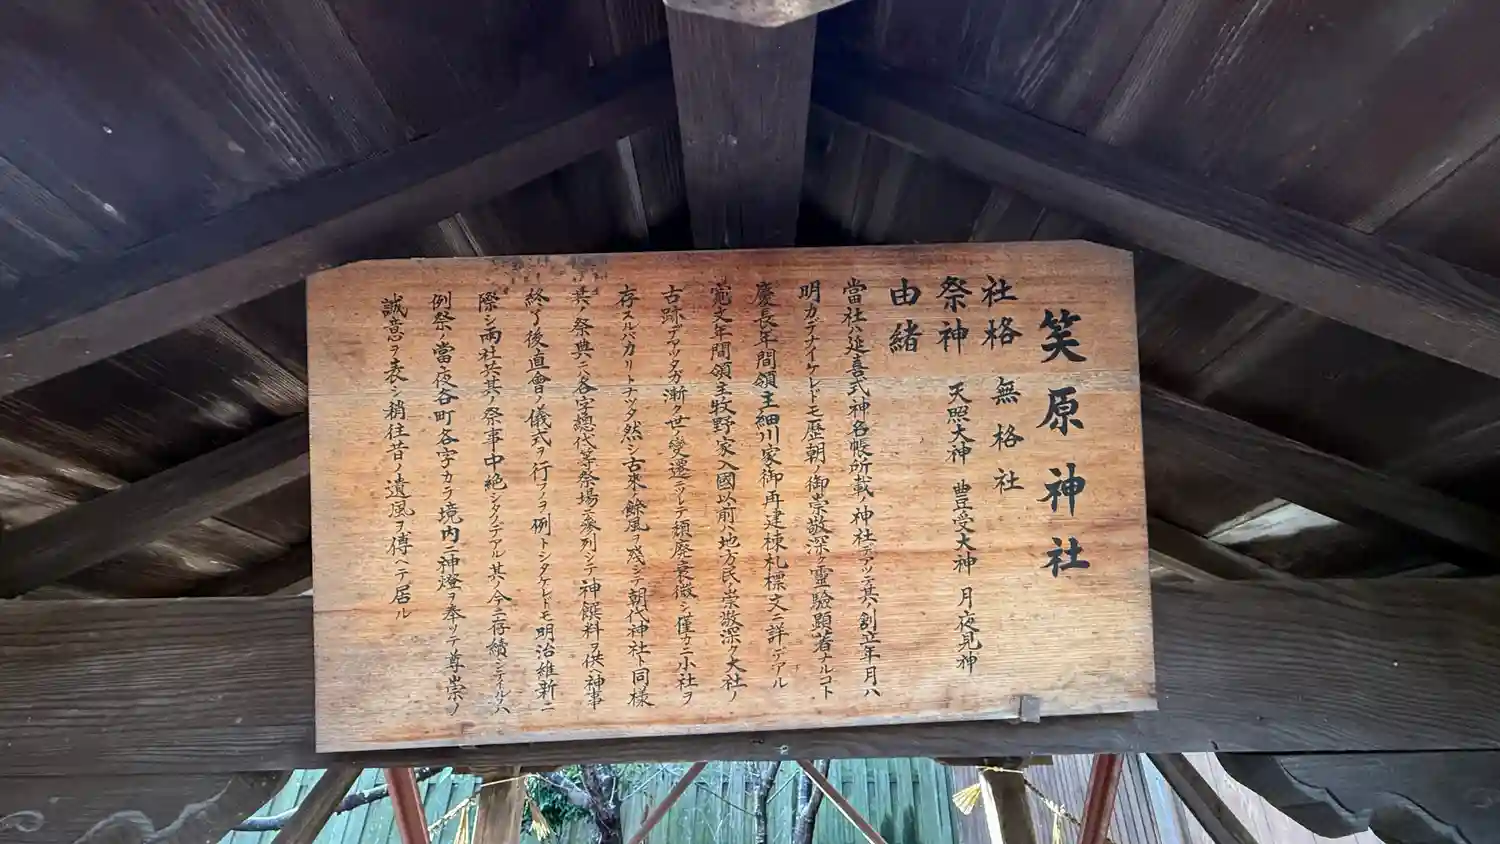 笑原神社
社格 無格社
祭神 天照大神 豊受大神 月夜見神
由緒
當社ハ延喜式神名帳所載ノ神社デアツテ其ノ創立年月ハ
明カデナイケレドモ歴朝ノ御崇敬深ク靈驗顯著ナルコト
慶長年間領主細川家御再建棟札標文ニ詳デアル
寛文年間領主牧野家入國以前ハ地方民崇敬深ク大社ノ
古跡デアツタガ漸ク世ノ變遷ニツレテ頽廃衰微シ僅カニ小社ヲ
存スルバカリトナツタ然シ古來ノ餘風ヲ残シテ朝代神社ト同樣
其ノ祭典ニハ各字總代等祭場ニ參列シテ神饌料ヲ供ヘ神事
終了後直會ノ儀式ヲ行フノヲ例トシタケレドモ明治維新ニ
際シ両社共其ノ祭事中絶シタノデアル其ノ今ニ存續シテイルノハ
例祭ノ當夜各町各字カラ境内ニ神燈ヲ奉ツテ尊崇ノ
誠意ヲ表シ稍往昔ノ遺風ヲ傳ヘテ居ル